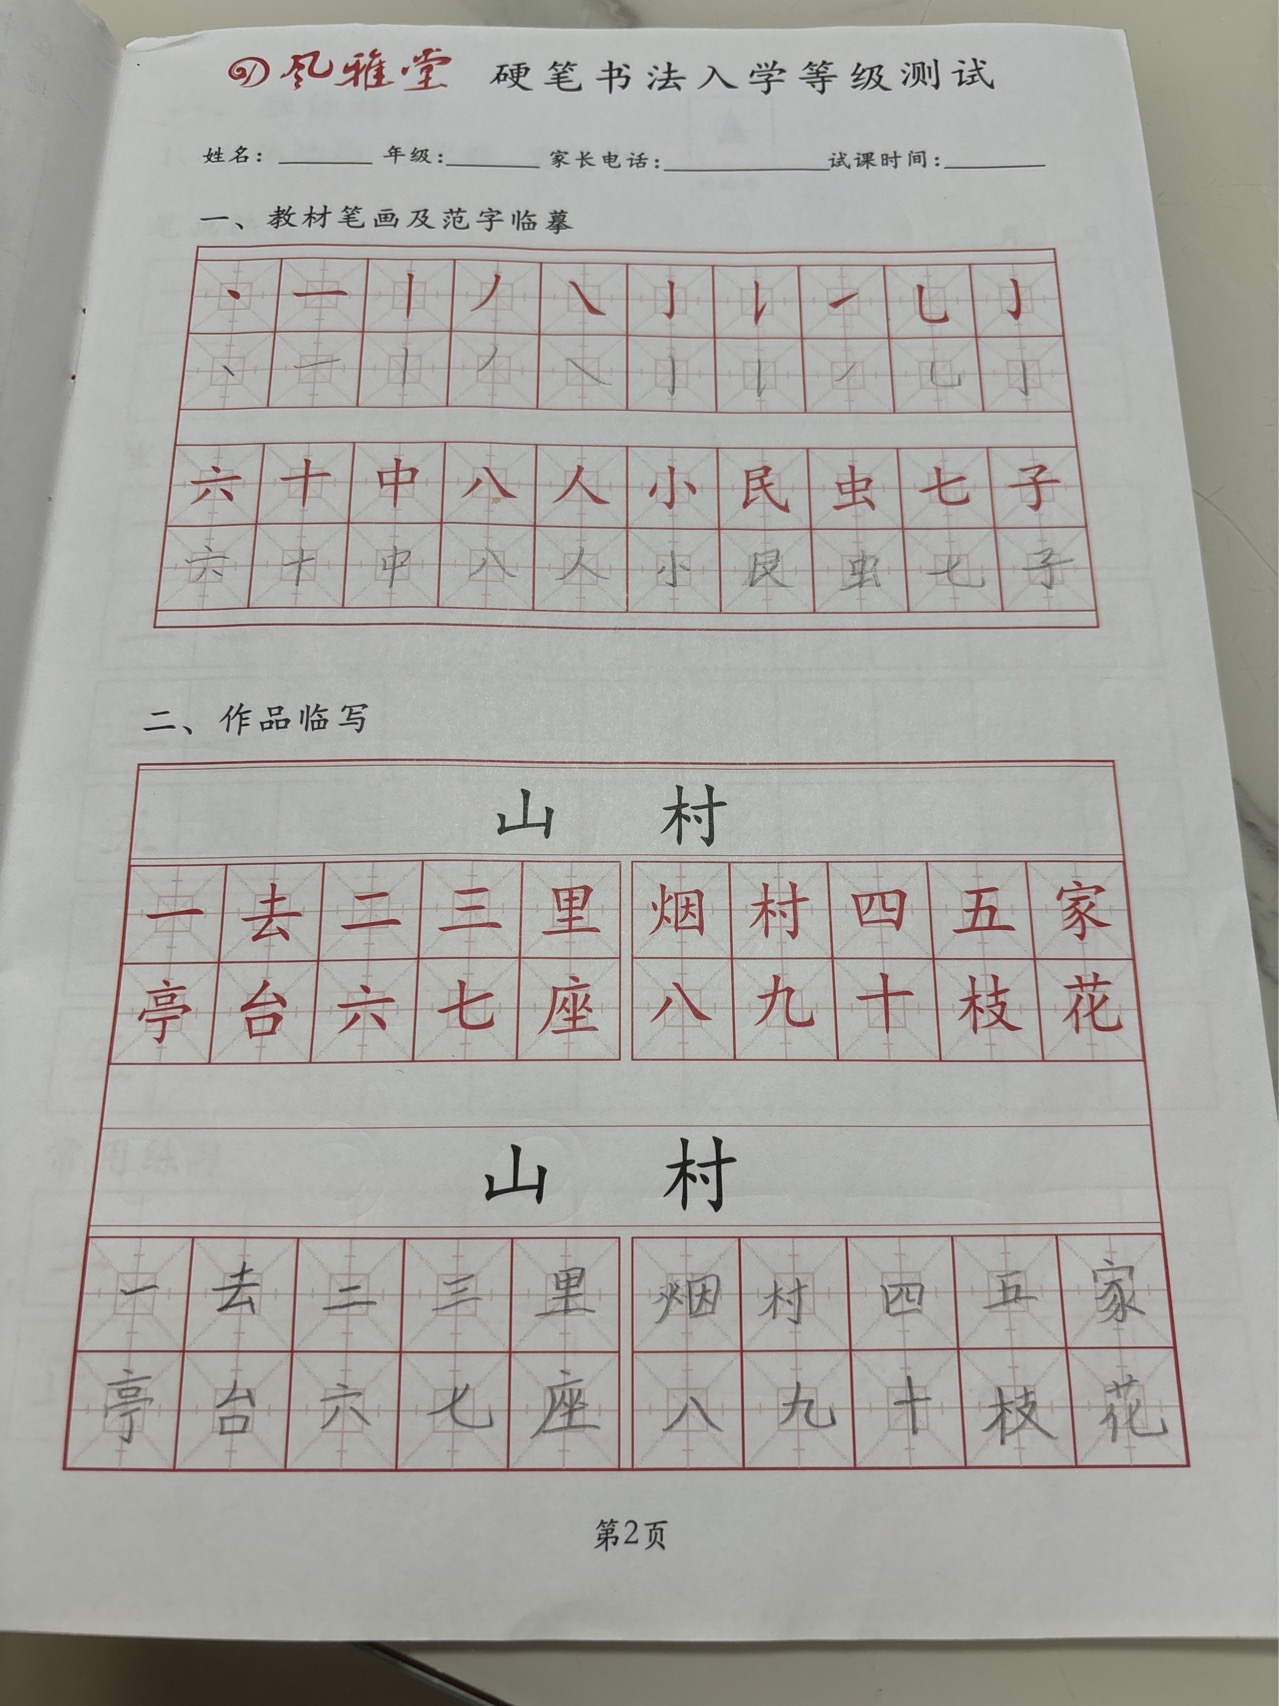 风雅堂 硬笔书法入学等级测试
姓名：______ 年级：______ 家长电话：__________ 试课时间：______
一、教材笔画及范字临摹
丶 一 丨 丿 ㇏ 亅 丨 ㇀ 乚 亅
丶 一 丨 丿 ㇏ 亅 丨 ㇀ 乚 亅
六 十 中 八 人 小 民 虫 七 子
六 十 中 八 人 小 民 虫 七 子
二、作品临写
山 村
一 去 二 三 里 烟 村 四 五 家
亭 台 六 七 座 八 九 十 枝 花
山 村
一 去 二 三 里 烟 村 四 五 家
亭 台 六 七 座 八 九 十 枝 花
第2页